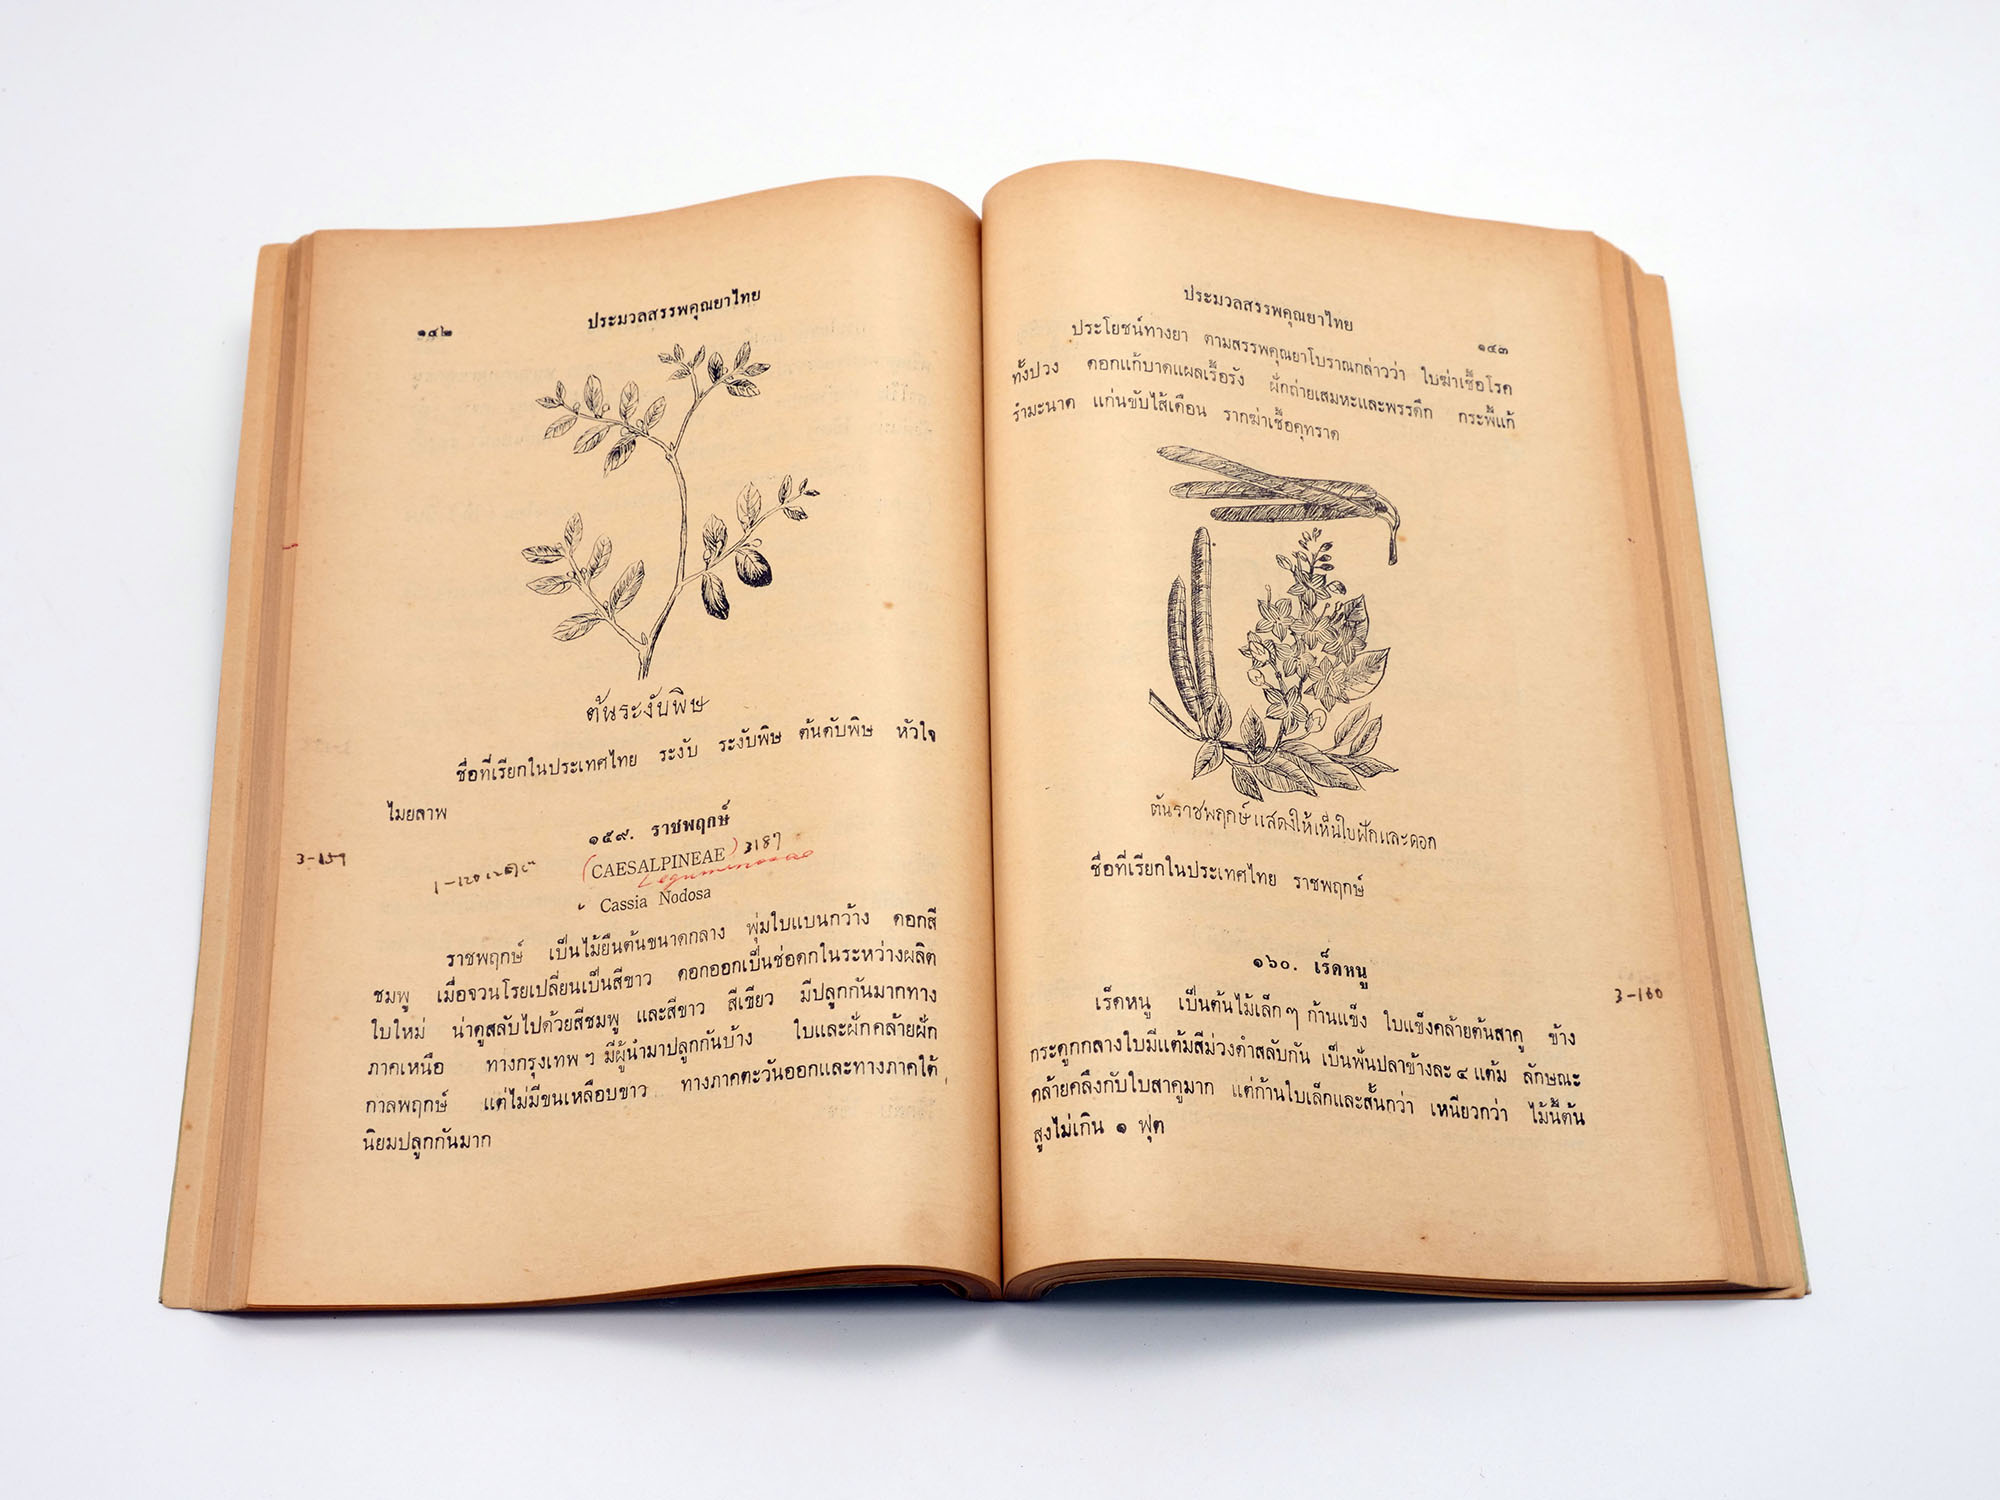 ๑๔๒
ประมวลสรรพคุณยาไทย
ต้นระงับพิษ
ชื่อที่เรียกในประเทศไทย ระงับ ระงับพิษ ต้นดับพิษ หัวใจ
ไมยลาพ
๑๕๙. ราชพฤกษ์
3-159
(CAESALPINEAE) 3187
Leguminosae
Cassia Nodosa
ราชพฤกษ์ เป็นไม้ยืนต้นขนาดกลาง พุ่มใบแบนกว้าง ดอกสี
ชมพู เมื่อจวนโรยเปลี่ยนเป็นสีขาว ดอกออกเป็นช่อดกในระหว่างผลิต
ใบใหม่ น่าดูสลับไปด้วยสีชมพู และสีขาว สีเขียว มีปลูกกันมากทาง
ภาคเหนือ ทางกรุงเทพฯ มีผู้นำมาปลูกกันบ้าง ใบและฝักคล้ายฝัก
กาลพฤกษ์ แต่ไม่มีขนเหลือบขาว ทางภาคตะวันออกและทางภาคใต้
นิยมปลูกกันมาก
ประมวลสรรพคุณยาไทย
๑๔๓
ประโยชน์ทางยา ตามสรรพคุณยาโบราณกล่าวว่า ใบฆ่าเชื้อโรค
ทั้งปวง ดอกแก้บาดแผลเรื้อรัง ฝักถ่ายเสมหะและพรรดึก กระพี้แก้
รำมะนาด แก่นขับไส้เดือน รากฆ่าเชื้อคุทราด
ต้นราชพฤกษ์แสดงให้เห็นใบฝักและดอก
ชื่อที่เรียกในประเทศไทย ราชพฤกษ์
๑๖๐. เร็ดหนู
3-160
เร็ดหนู เป็นต้นไม้เล็กๆ ก้านแข็ง ใบแข็งคล้ายต้นสาคู ข้าง
กระดูกกลางใบมีแต้มสีม่วงดำสลับกัน เป็นฟันปลาข้างละ ๔ แต้ม ลักษณะ
คล้ายคลึงกับใบสาคูมาก แต่ก้านใบเล็กและสั้นกว่า เหนียวกว่า ไม้นี้ต้น
สูงไม่เกิน ๑ ฟุต